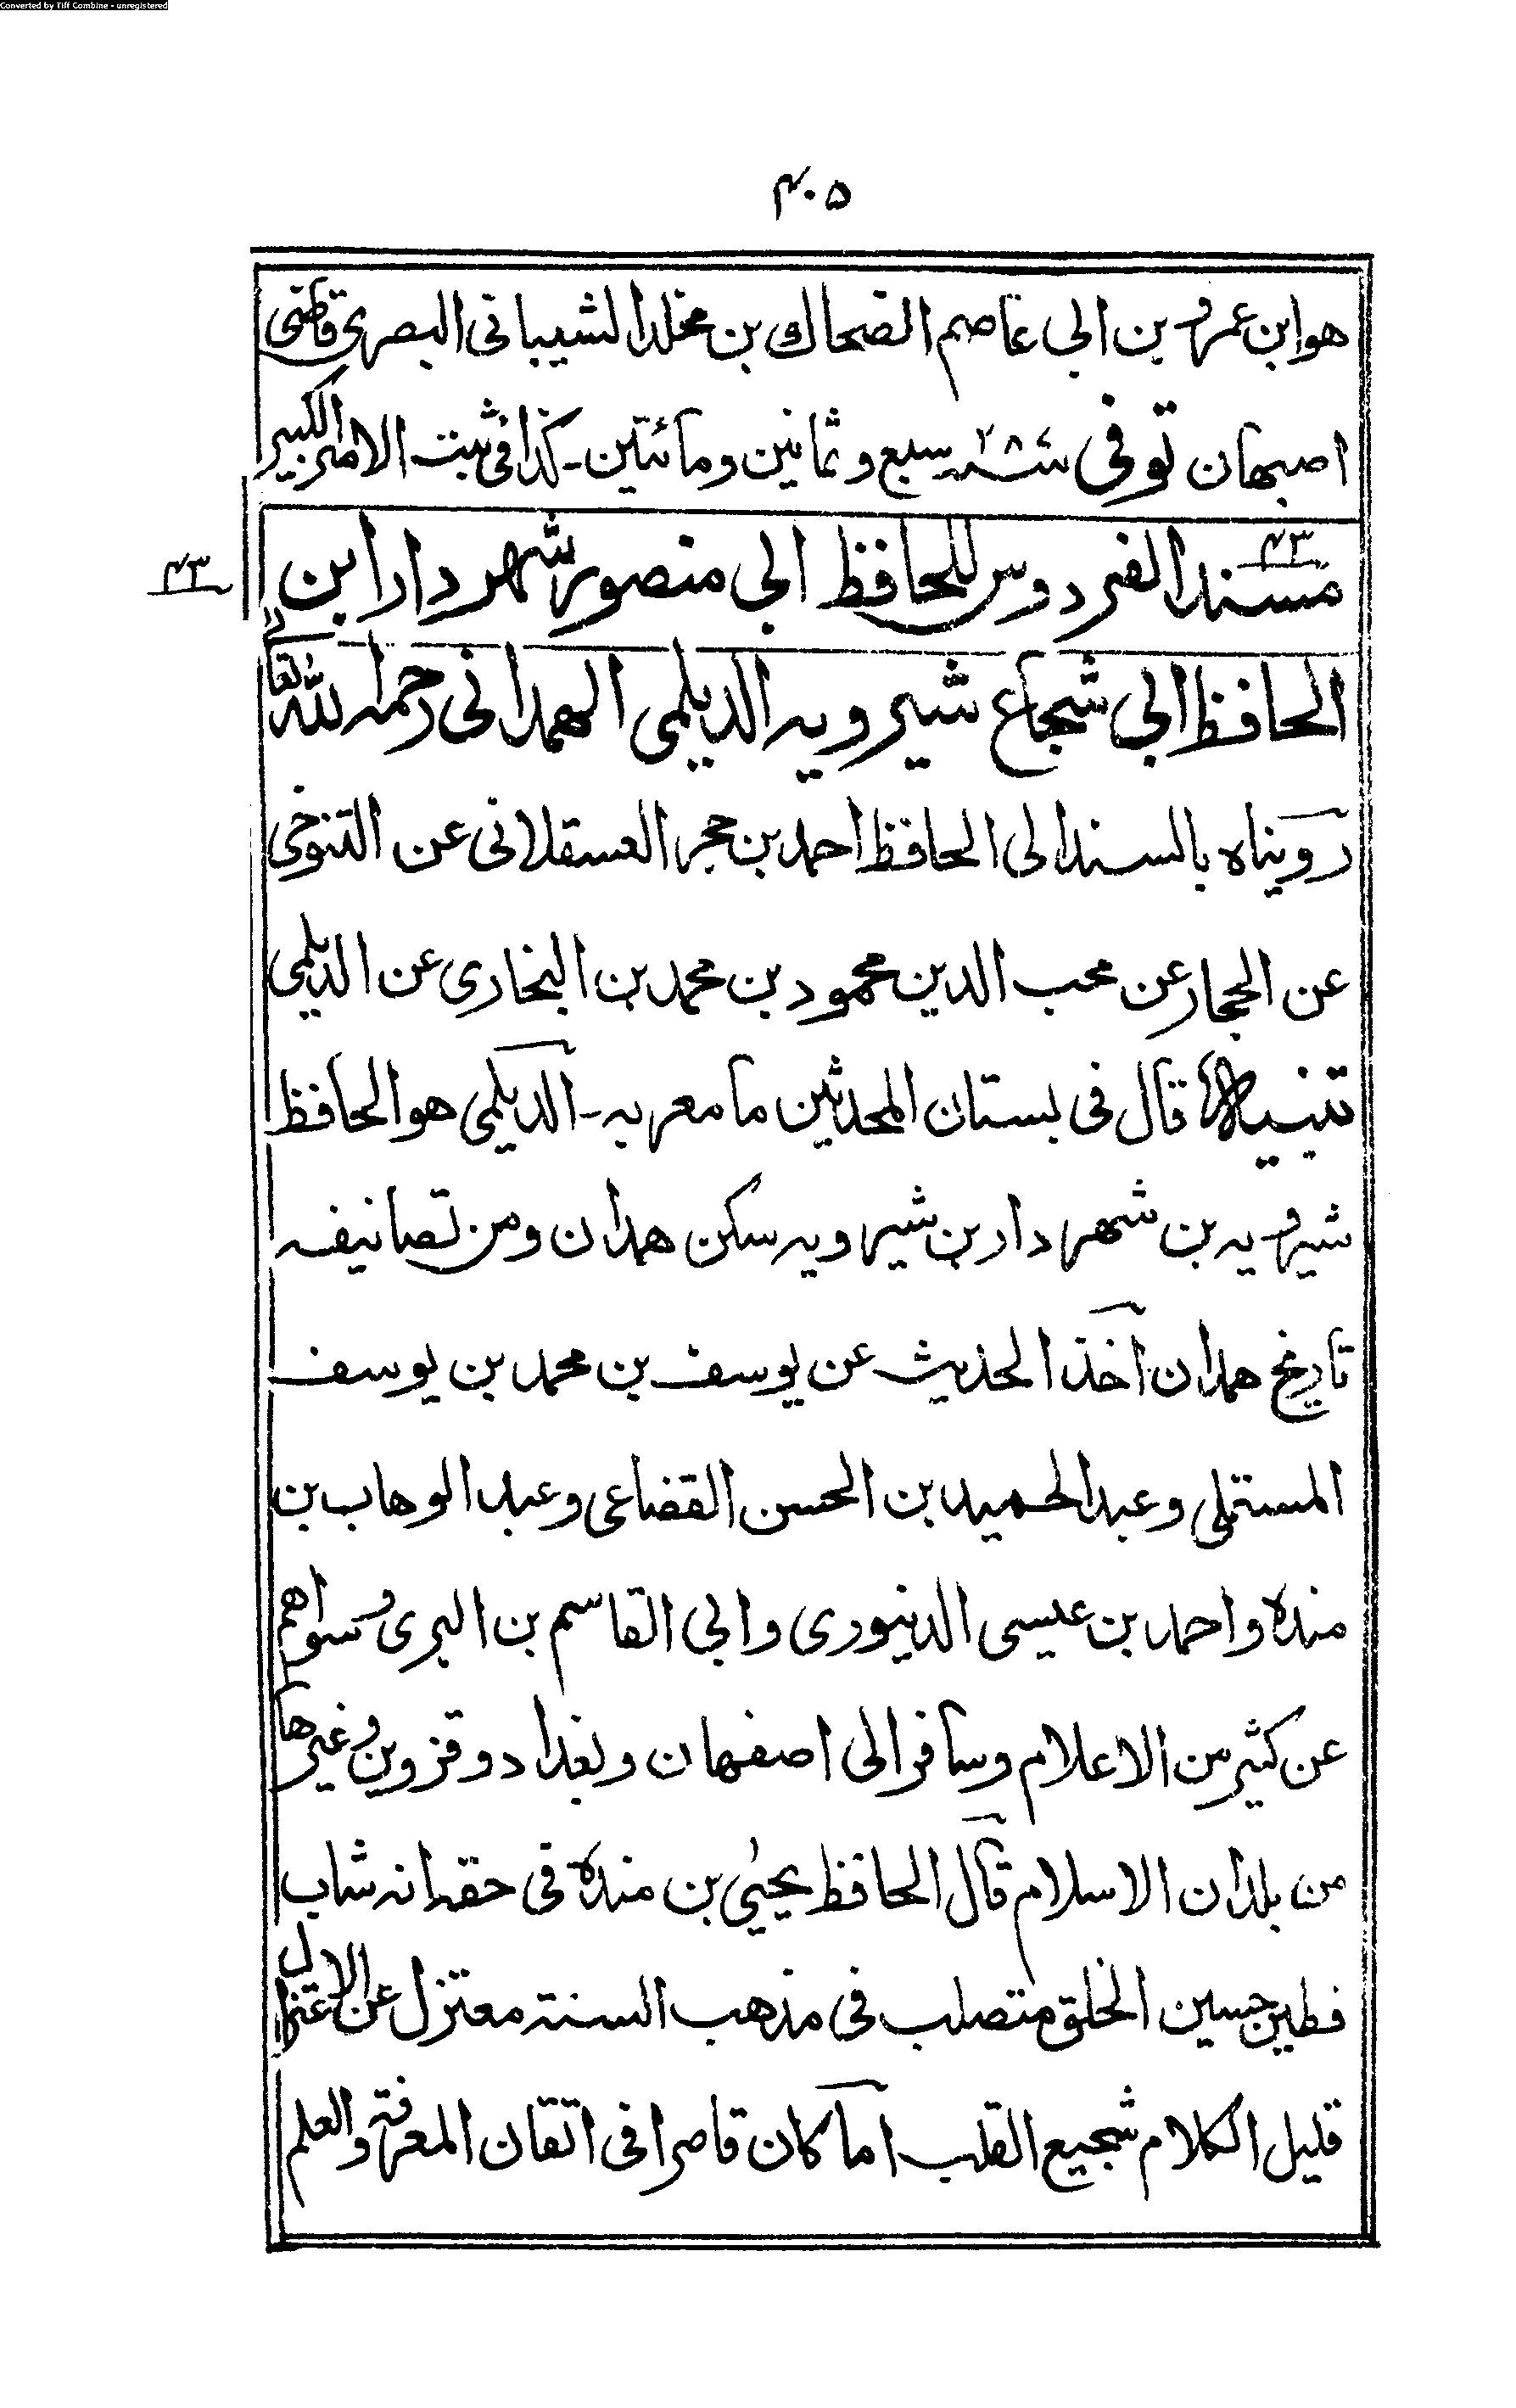 Converted by Tiff Combine - unregistered
۴۰۵
هو ابن عمرو بن ابى عاصم الضحاك بن مخلد الشيبانى البصرى قاضى
اصبهان توفى سنة ٢٨٧ سبع وثمانين ومائتين ـ كذا فى ثبت الامير الكبير
۴۳
مسند الفردوس للحافظ ابى منصور شهردار ابن
۴۳
الحافظ ابى شجاع شيرويه الديلمى الهمدانى رحمه الله تعالى
رويناه بالسند الى الحافظ احمد بن حجر العسقلانى عن التنوخى
عن الحجار عن محب الدين محمود بن محمد بن البخارى عن الديلمى
تنبيه قال فى بستان المحدثين ما معربه ـ الديلمى هو الحافظ
شيرويه بن شهردار بن شيرويه سكن همدان ومن تصانيفه
تاريخ همدان اخذ الحديث عن يوسف بن محمد بن يوسف
المستملى وعبد الحميد بن الحسن القضاعى وعبد الوهاب بن
منده واحمد بن عيسى الدينورى وابى القاسم بن البرى وسواهم
عن كثير من الاعلام وسافر الى اصفهان وبغداد وقزوين وغيرها
من بلدان الاسلام قال الحافظ يحيى بن منده فى حقه انه شاب
فطين حسين الخلق متصلب فى مذهب السنة معتزل عن الاعتزال
قليل الكلام شجيع القلب اما كان قاصرا فى اتقان المعرفة والعلم